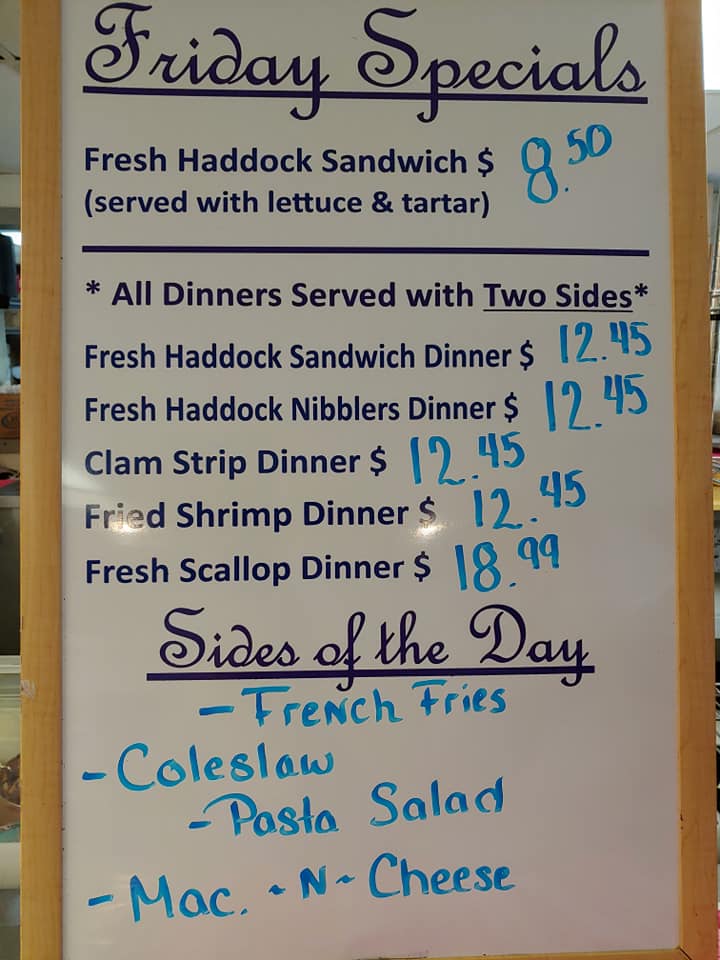 Friday Specials
Fresh Haddock Sandwich $ 8.50
(served with lettuce & tartar)
* All Dinners Served with Two Sides*
Fresh Haddock Sandwich Dinner $ 12.45
Fresh Haddock Nibblers Dinner $ 12.45
Clam Strip Dinner $ 12.45
Fried Shrimp Dinner $ 12.45
Fresh Scallop Dinner $ 18.99
Sides of the Day
- French Fries
- Coleslaw
- Pasta Salad
- Mac. - N - Cheese